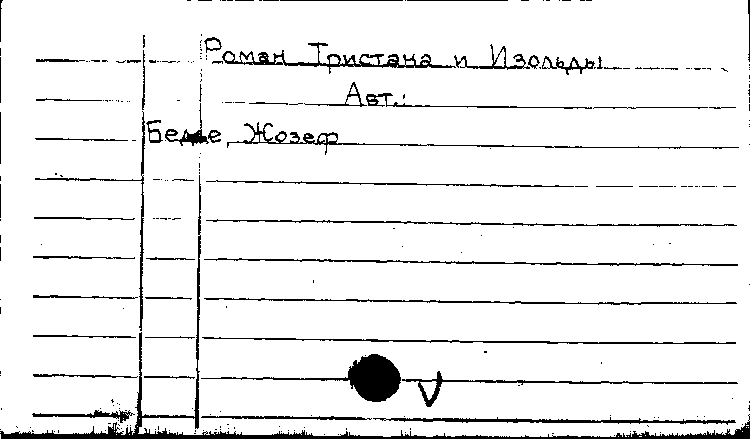 Роман Тристана и Изольды
Авт.:
Бедье, Жозеф
V